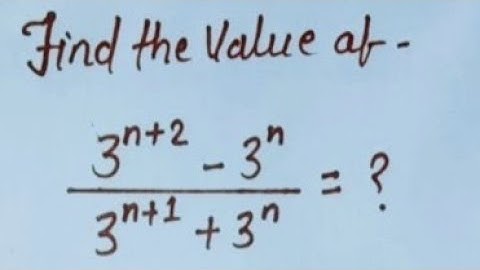 Find the Value of -
3^{n+2} - 3^n
3^{n+1} + 3^n = ?